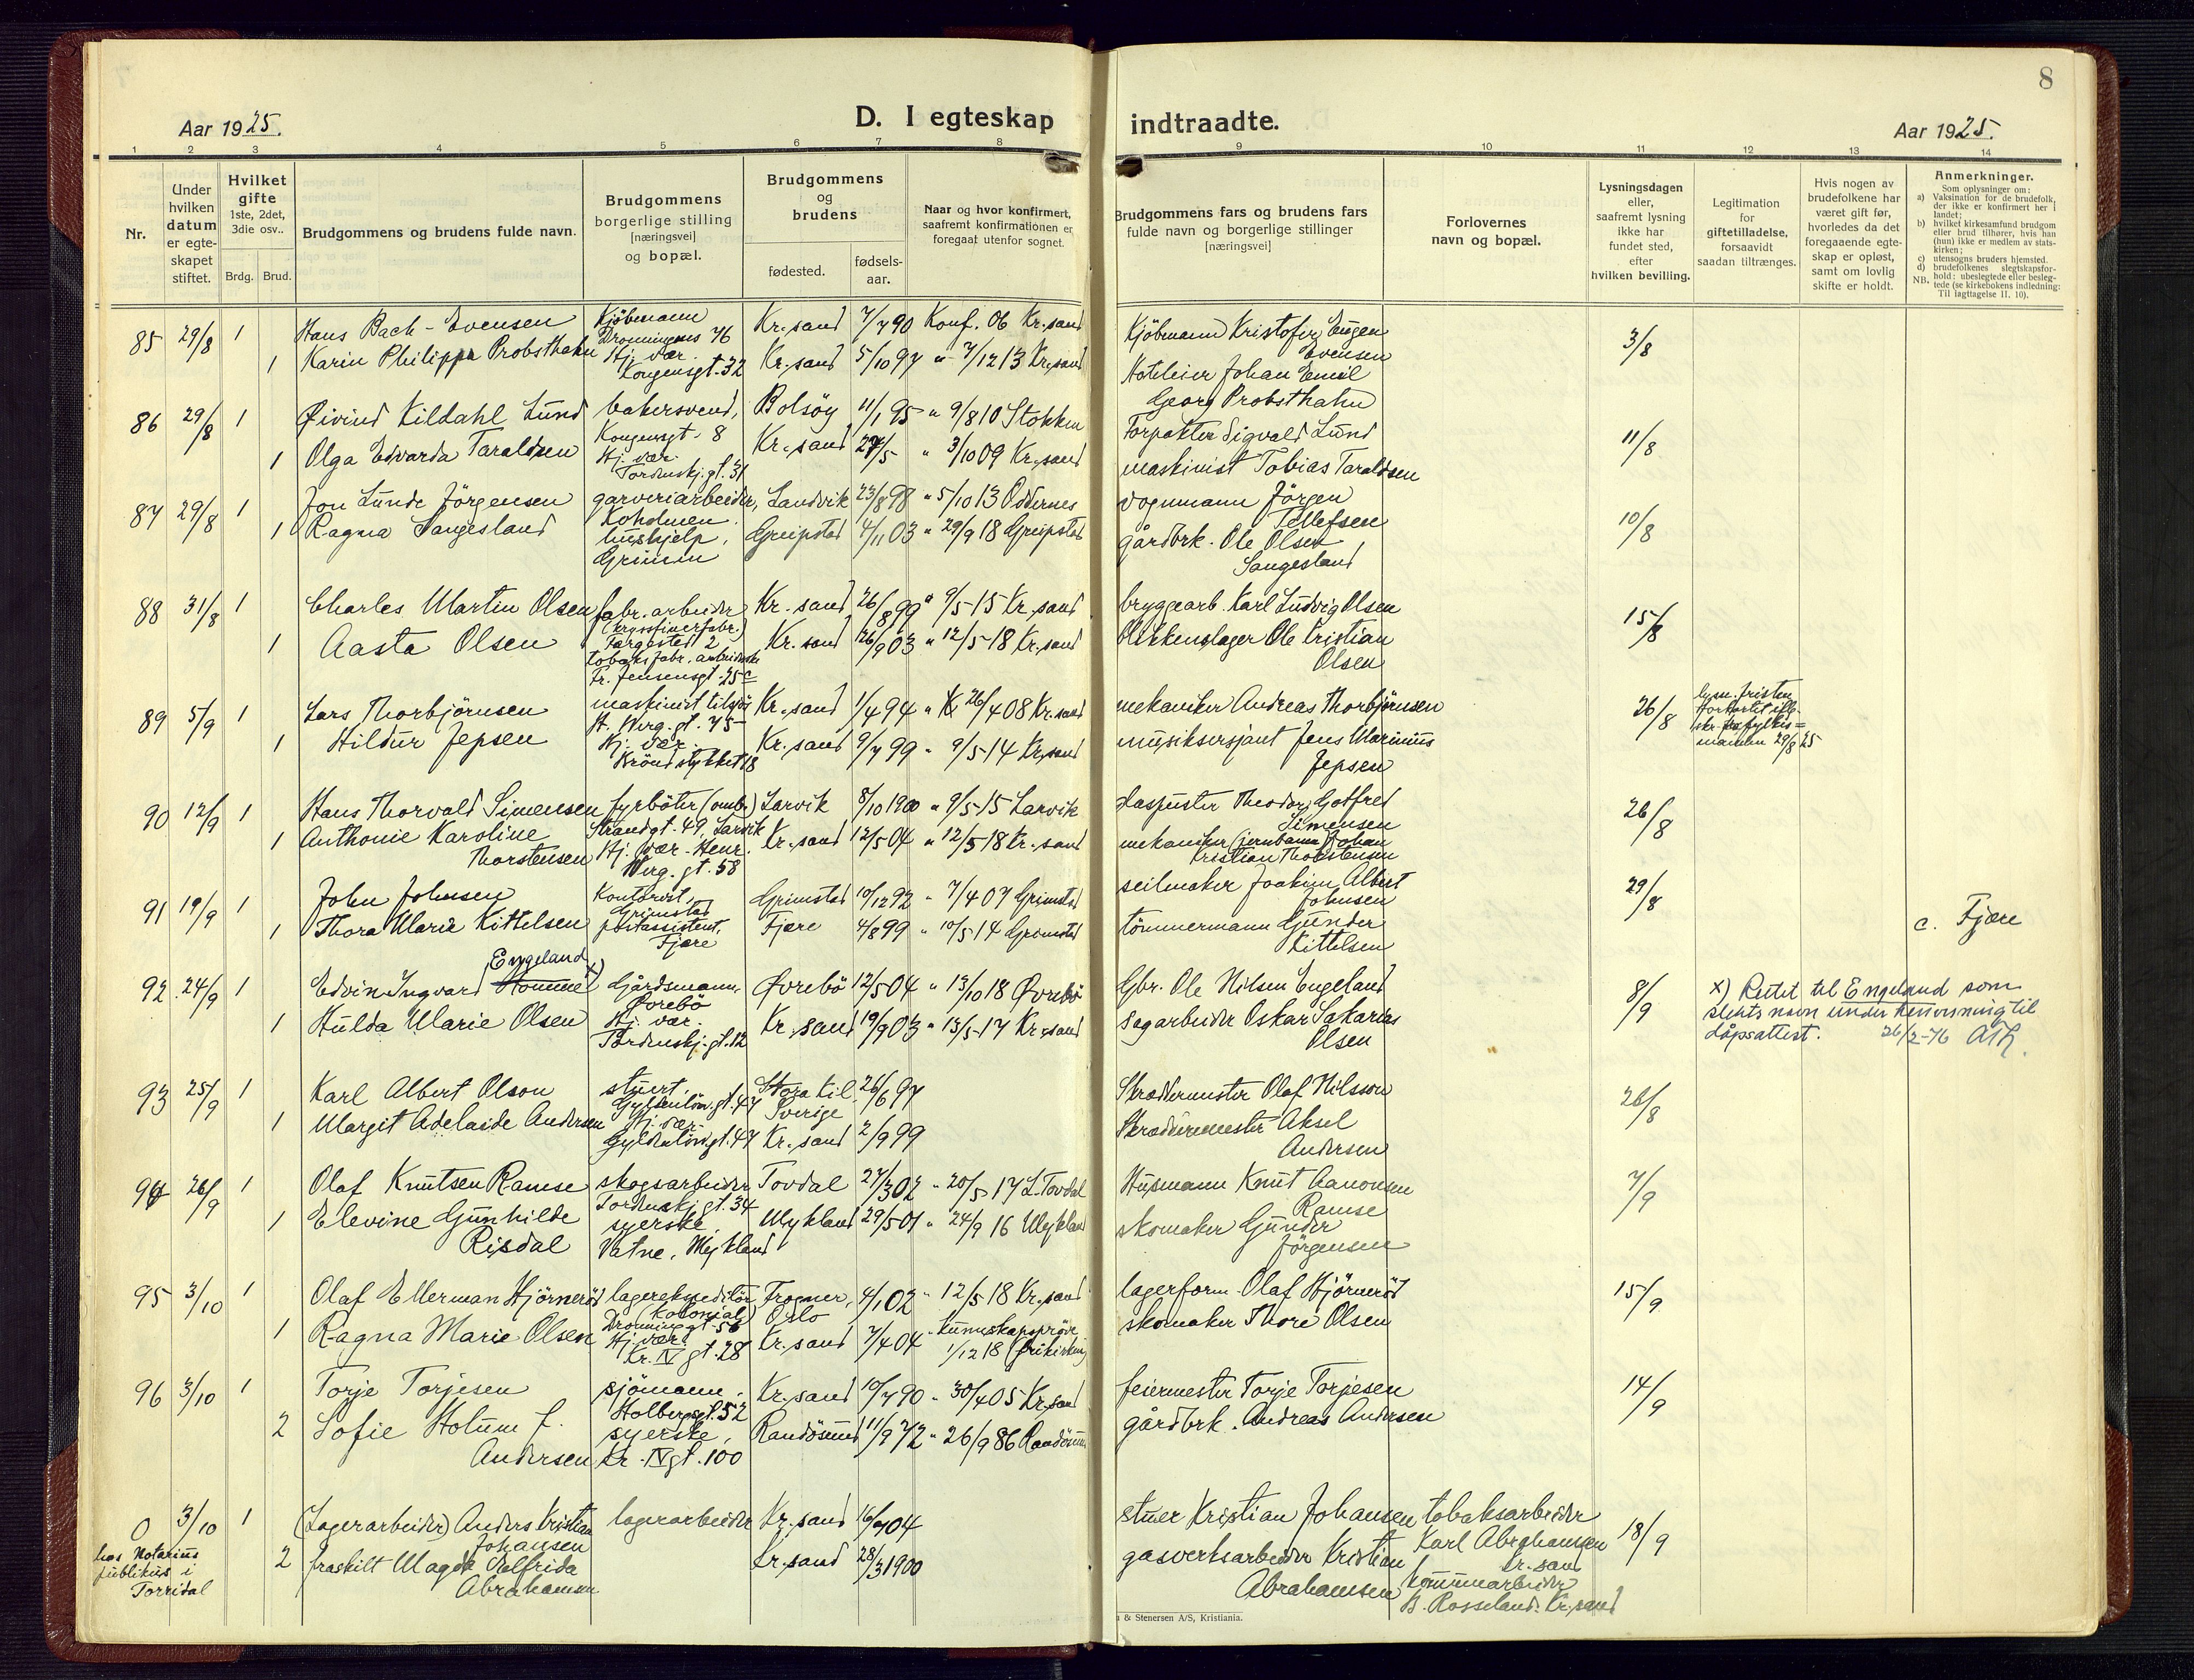 8
Aar 1925.
D. I egteskap indtraadte.
Aar 1925.
1 2 3 4 5 6 7 8 9 10 11 12 13 14
Nr.
Under hvilken datum er egte-skapet stiftet.
Hvilket gifte 1ste, 2det, 3die osv..
Brdg. Brud.
Brudgommens og brudens fulde navn.
Brudgommens borgerlige stilling [næringsvei] og bopæl.
Brudgommens og brudens
fødested.
fødsels-aar.
Naar og hvor konfirmert, saafremt konfirmationen er foregaat utenfor sognet.
Brudgommens fars og brudens fars fulde navn og borgerlige stillinger [næringsvei]
Forlovernes navn og bopæl.
Lysningsdagen eller, saafremt lysning ikke har fundet sted, efter hvilken bevilling.
Legitimation for giftetilladelse, forsaavidt saadan tiltrænges.
Hvis nogen av brudefolkene har været gift før, hvorledes da det foregaaende egte-skap er opløst, samt om lovlig skifte er holdt.
Anmerkninger.
Som oplysninger om:
a) Vaksination for de brudefolk, der ikke er konfirmert her i landet;
b) hvilket kirkesamfund brudgom eller brud tilhører, hvis han (hun) ikke er medlem av stats-kirken;
c) utensogns bruders hjemsted.
d) brudefolkenes slegtskapsfor-hold: ubeslegtede eller besleg-tede (se kirkebokens indledning:
NB. Til Iagttagelse II. 10).
85 29/8 1 Hans Bach-Evensen Kjöbmann Dronningens 76 Kr.sand 7/7 90 Konf. 06 Kr.sand Kjöbmann Kristofer Eugen Evensen 3/8
1 Karin Philippa Probsthahn Hj. vær. Kongensgt. 32 Kr.sand 5/10 97 " 7/12 13 Kr.sand Hoteleier Johan Emil Georg Probsthahn
86 29/8 1 Øivind Kildahl Lund bakersvend, Kongensgt. 8 Bolsöy 11/1 95 " 9/8 10 Stokken Forpakter Sigvald Lund 11/8
1 Olga Edvarda Taraldsen Hj. vær. Tordenskj.gt. 31 Kr.sand " 3/10 09 Kr.sand maskinist Tobias Taraldsen
87 29/8 1 Jon Lunde Jörgensen garveriarbeider, Koholmen. Landvik 23/8 98 " 5/10 13 Oddernes vognmann Jörgen Tellefsen 10/8
1 Ragna Sangesland hushjelp, Grimen Greipstad 4/11 03 " 29/9 18 Greipstad gårdbrk. Ole Olsen Sangesland
88 31/8 1 Charles Martin Olsen fabr. arbeider (kryssfinerfabr.) Torgested 2 Kr.sand 26/8 99 " 9/5-15 Kr.sand bryggearb. Karl Ludvig Olsen 15/8
1 Aasta Olsen tobaks fabr. arbeiderske Fr. Jensensgt. 25 c Kr.sand 26/9 03 " 12/5-18 Kr.sand Blikkenslager Ole Kristian Olsen
89 5/9 1 Lars Thorbjörnsen maskinist tilsjös H. Werg.gt. 75 Kr.sand 1/4 94 " 26/4 08 Kr.sand mekaniker Andreas Thorbjörnsen 26/8 lysn. fristen forkortet ifl. skr. fra fylkes=mannen 29/8 25
1 Hildur Jepsen Hj. vær. Krönestykket 18 Kr.sand 9/7 99 " 9/5-14 Kr.sand musiksersjant Jens Marinius Jepsen
90 12/9 1 Hans Thorvald Simensen fyrböter (omb.) Strandgt. 49, Larvik Larvik 8/10 1900 " 9/5-15 Larvik Glaspuster Theodor Gotfred Simensen 26/8
1 Anthonie Karoline Thorstensen Hj. vær - Henr. Werg. gt. 58 Kr.sand 12/5 04 " 12/5 18 Kr.sand mekaniker (jernbane) Johan Kristian Thorstensen
91 19/9 1 John Johnsen Kontorist. Grimstad Grimstad 10/12 92 " 7/4 07 Grimstad seilmaker Joakim Albert Johnsen 29/8
1 Thora Marie Kittelsen postassistent, Fjære Fjære 4/8 99 " 10/5 14 Grimstad tömmermann Gunder Kittelsen c. Fjære
92 24/9 1 Edvin Ingvard Homme Engeland x) Gårdsmann, Øvrebö Øvrebö 12/5 04 " 13/10 18 Øvrebö Gbr. Ole Nilsen Engeland 8/9 x) Rettet til Engeland som slekts navn under henvisning til dåpsattest. 26/2-76
1 Hulda Marie Olsen Hj. vær. Tordenskj.gt. 12 Kr.sand 19/9 03 " 13/5-17 Kr.sand sagarbeider Oskar Sakarias Olsen
93 25/9 1 Karl Albert Olson stuert. Gyldenlöv.gt. 47 Stora Kil Sverige 26/6 97 Skreddermester Olof Nilsson 26/8
1 Margit Adelaide Andersen Hj. vær. Gyldenlöv.gt. 47 Kr.sand 2/9 99 Skreddermester Aksel Andersen
94 26/9 1 Olaf Knutsen Ramse skogsarbeider Tordenskj.gt. 34 Tovdal 27/3 02 " 20/5 17 L. Tovdal Husmann Knut Aanonsen Ramse 7/9
1 Elevine Gunhilde Risdal syerske. Vatne, Mykland Mykland 29/5 01 " 24/9 16 Mykland skomaker Gunder Jörgensen
95 3/10 1 Olaf Ellerman Hjörneröd lagerekspeditör (kolonial) Dronninggt. 56 Frogner, Oslo 4/1 02 " 12/5 18 Kr.sand lagerform. Olaf Hjörneröd 15/9
1 Ragna Marie Olsen Hj. vær. Kr. IV gt. 28 Kr.sand 7/4 04 " kunnskapspröve 1/12 18 (frikirken) skomaker Thore Olsen
96 3/10 1 Torje Torjesen sjömann. Holbergsgt. 52 Kr.sand 10/7 90 " 30/4 05 Kr.sand feiermester Torje Torjesen 14/9
2 Sofie Holum f. Andersen syerske, Kr. IV gt. 100 Randösund 11/9 72 " 26/9 86 Randösund gårdbrk. Andreas Andersen
0 3/10 1 (Lagerarbeider) Anders Kristian Johansen lagerarbeider Kr.sand stuer Kristian Johansen tobaksarbeider Karl Abrahamsen Kr.sand 18/9
hos Notarius publikus i Torridal
2 fraskilt Magda Elfrida Abrahamsen Kr.sand 28/3 1900 gasverksarbeider Kristian Abrahamsen kommunearbeider B. Rosseland. Kr.sand
& Stenersen A/S, Kristiania.